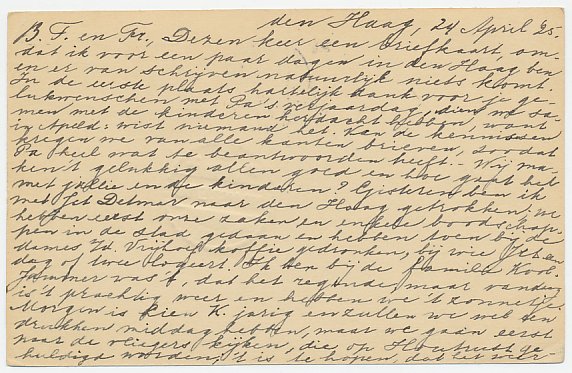 den Haag, 24 April 25.
B. F. en Fr., Dezen keer een briefkaart, om-
dat ik voor een paar dagen in den Haag ben
en er van schrijven natuurlijk niets komt.
In de eerste plaats hartelijk dank voor je ge-
lukwenschen met Pa's verjaardag, dien we sa-
men met de kinderen herdacht hebben, want
in Apeld: wist niemand het. Van de kennissen
kregen we van alle kanten brieven, zoodat
Pa heel wat te beantwoorden heeft. Wij ma-
ken't gelukkig allen goed en hoe gaat het
met jullie en de kinderen? Gisteren ben ik
met Jet Detmar naar den Haag getrokken, we
hebben eerst onze zaken en enkele boodschap-
pen in de stad gedaan en hebben toen bij de
dames v.d. koffie gedronken, bij wie Jet een
dag of twee logeert. Ik ben bij de familie Kool.
Jammer was 't, dat het regende, maar vandaag
is 't prachtig weer en hebben we 't zonnetje.
Morgen is Lien K. jarig en zullen we wel een
drukken middag hebben, maar we gaan eerst
naar de vliegers kijken, die op Houtrust ge-
huldigd worden, 't is te hopen, dat het weer